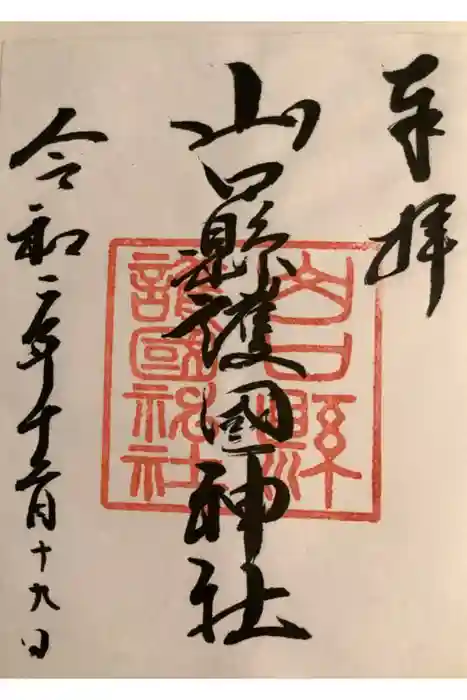 奉拝
山口縣護國神社
令和二年十二月十九日
山口縣
護國神社